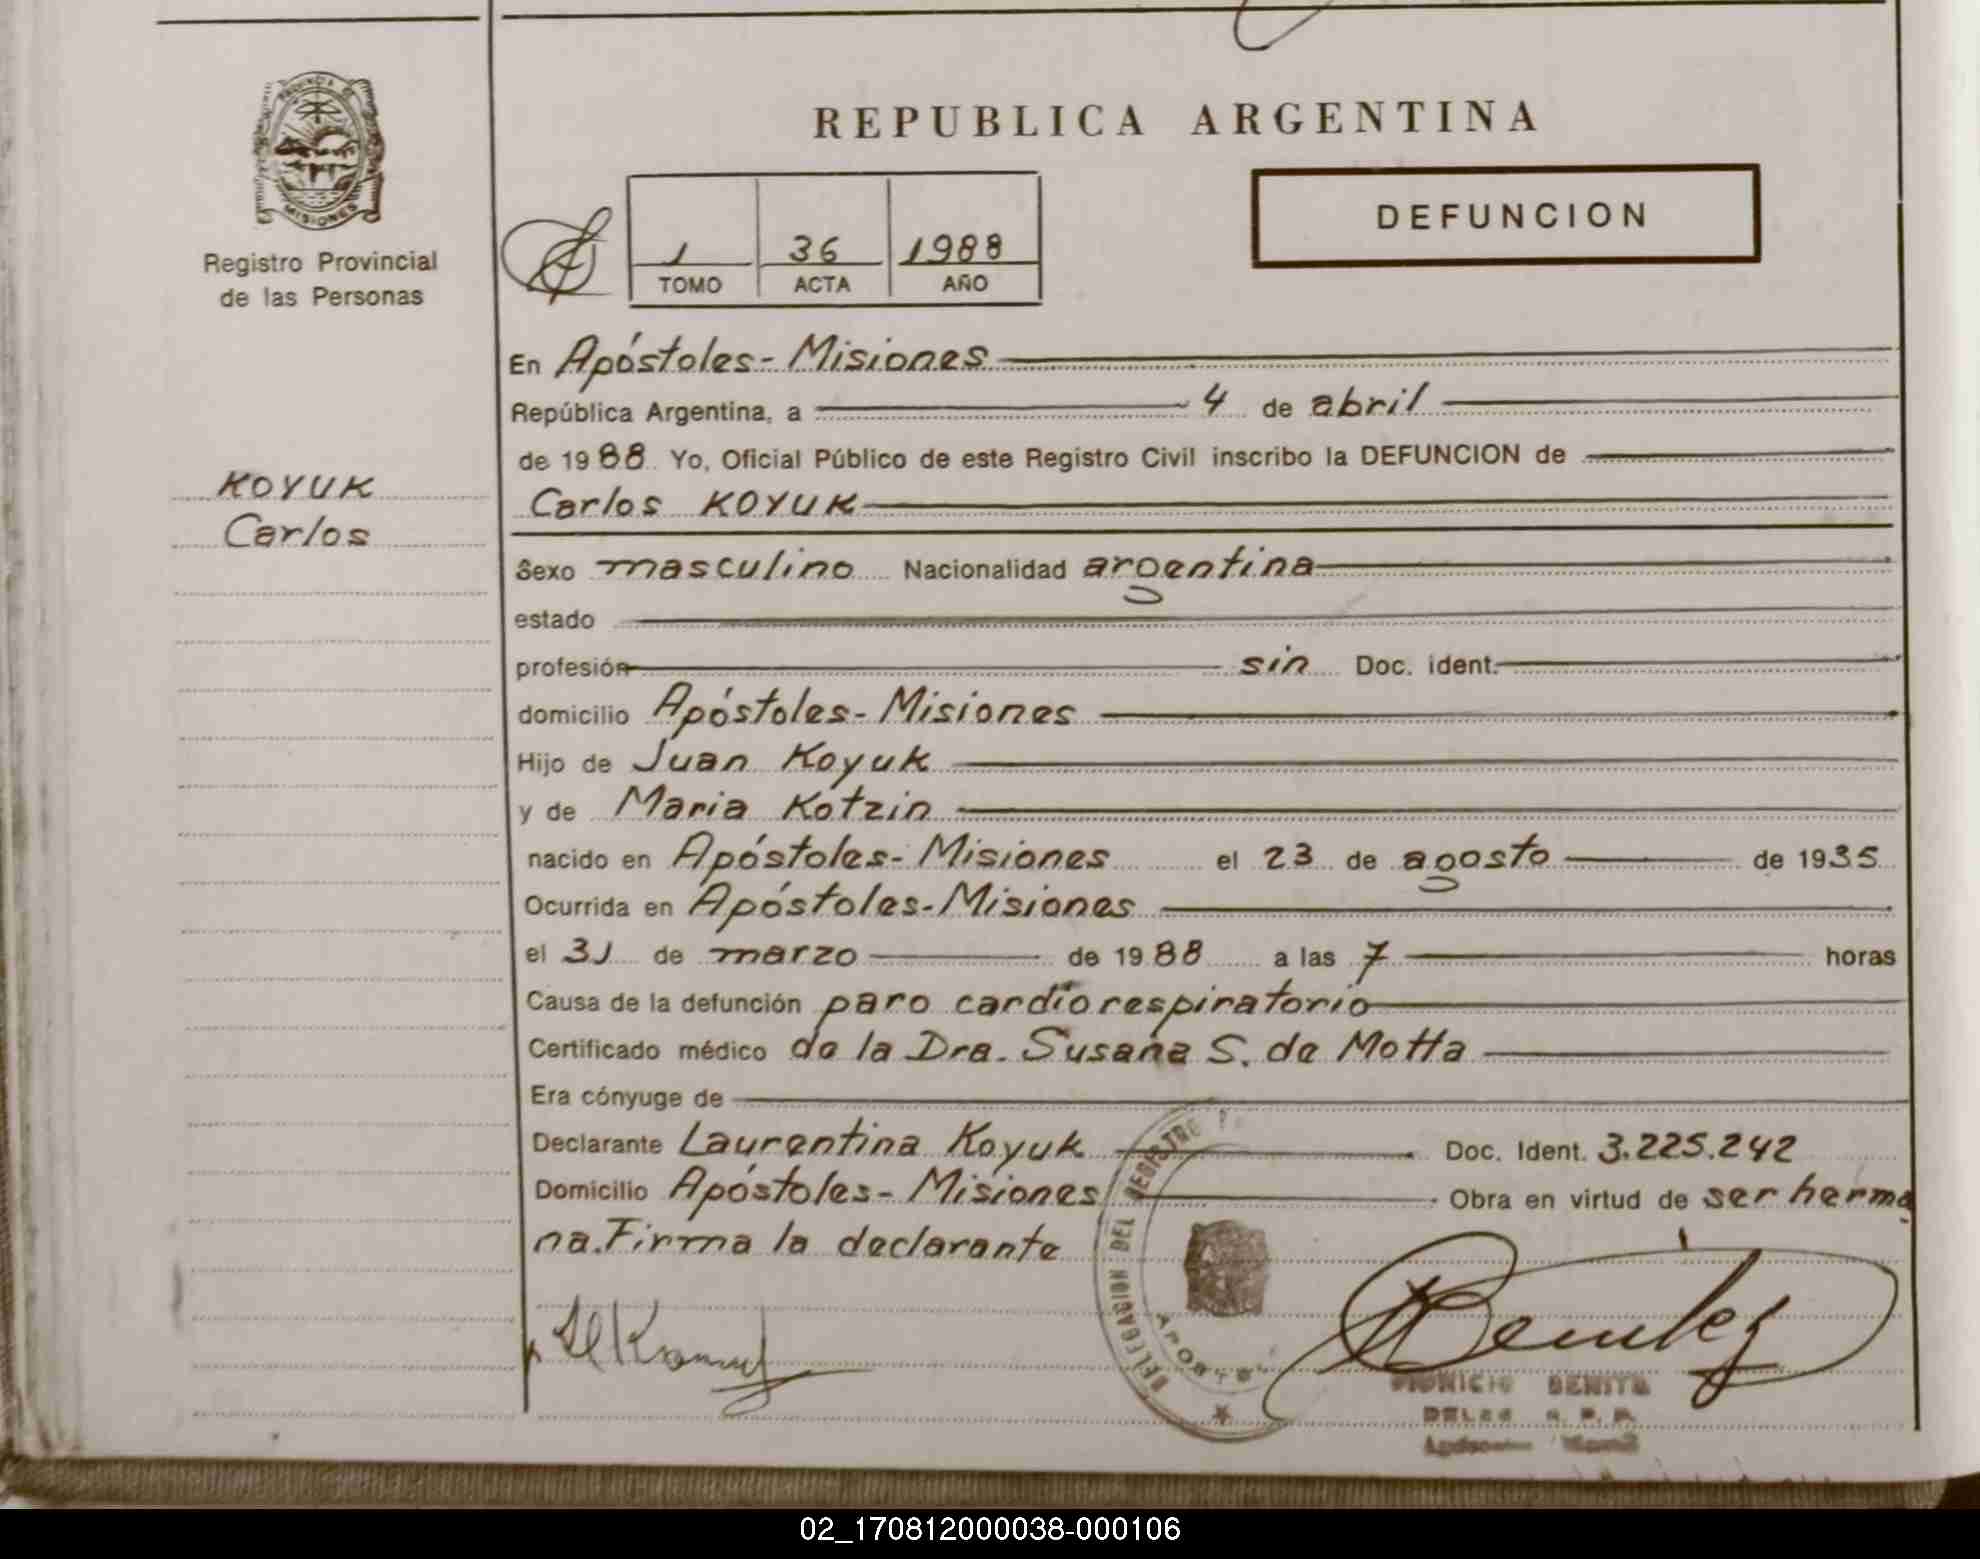 REPUBLICA ARGENTINA
PROVINCIA DE
MISIONES
Registro Provincial
de las Personas
1 36 1988
TOMO ACTA AÑO
DEFUNCION
En Apóstoles - Misiones
República Argentina, a 4 de abril
de 1988 Yo, Oficial Público de este Registro Civil inscribo la DEFUNCION de
KOYUK
Carlos
Carlos KOYUK
Sexo masculino Nacionalidad argentina
estado
profesión sin Doc. ident.
domicilio Apóstoles - Misiones
Hijo de Juan Koyuk
y de Maria Kotzin
nacido en Apóstoles - Misiones el 23 de agosto de 1935
Ocurrida en Apóstoles - Misiones
el 31 de marzo de 1988 a las 7 horas
Causa de la defunción paro cardiorespiratorio
Certificado médico de la Dra. Susana S. de Motta
Era cónyuge de
Declarante Laurentina Koyuk Doc. Ident. 3.225.242
Domicilio Apóstoles - Misiones Obra en virtud de ser herma
na. Firma la declarante
DELEGACION DEL REGISTRO
DIONICIO BENITE
02_170812000038-000106